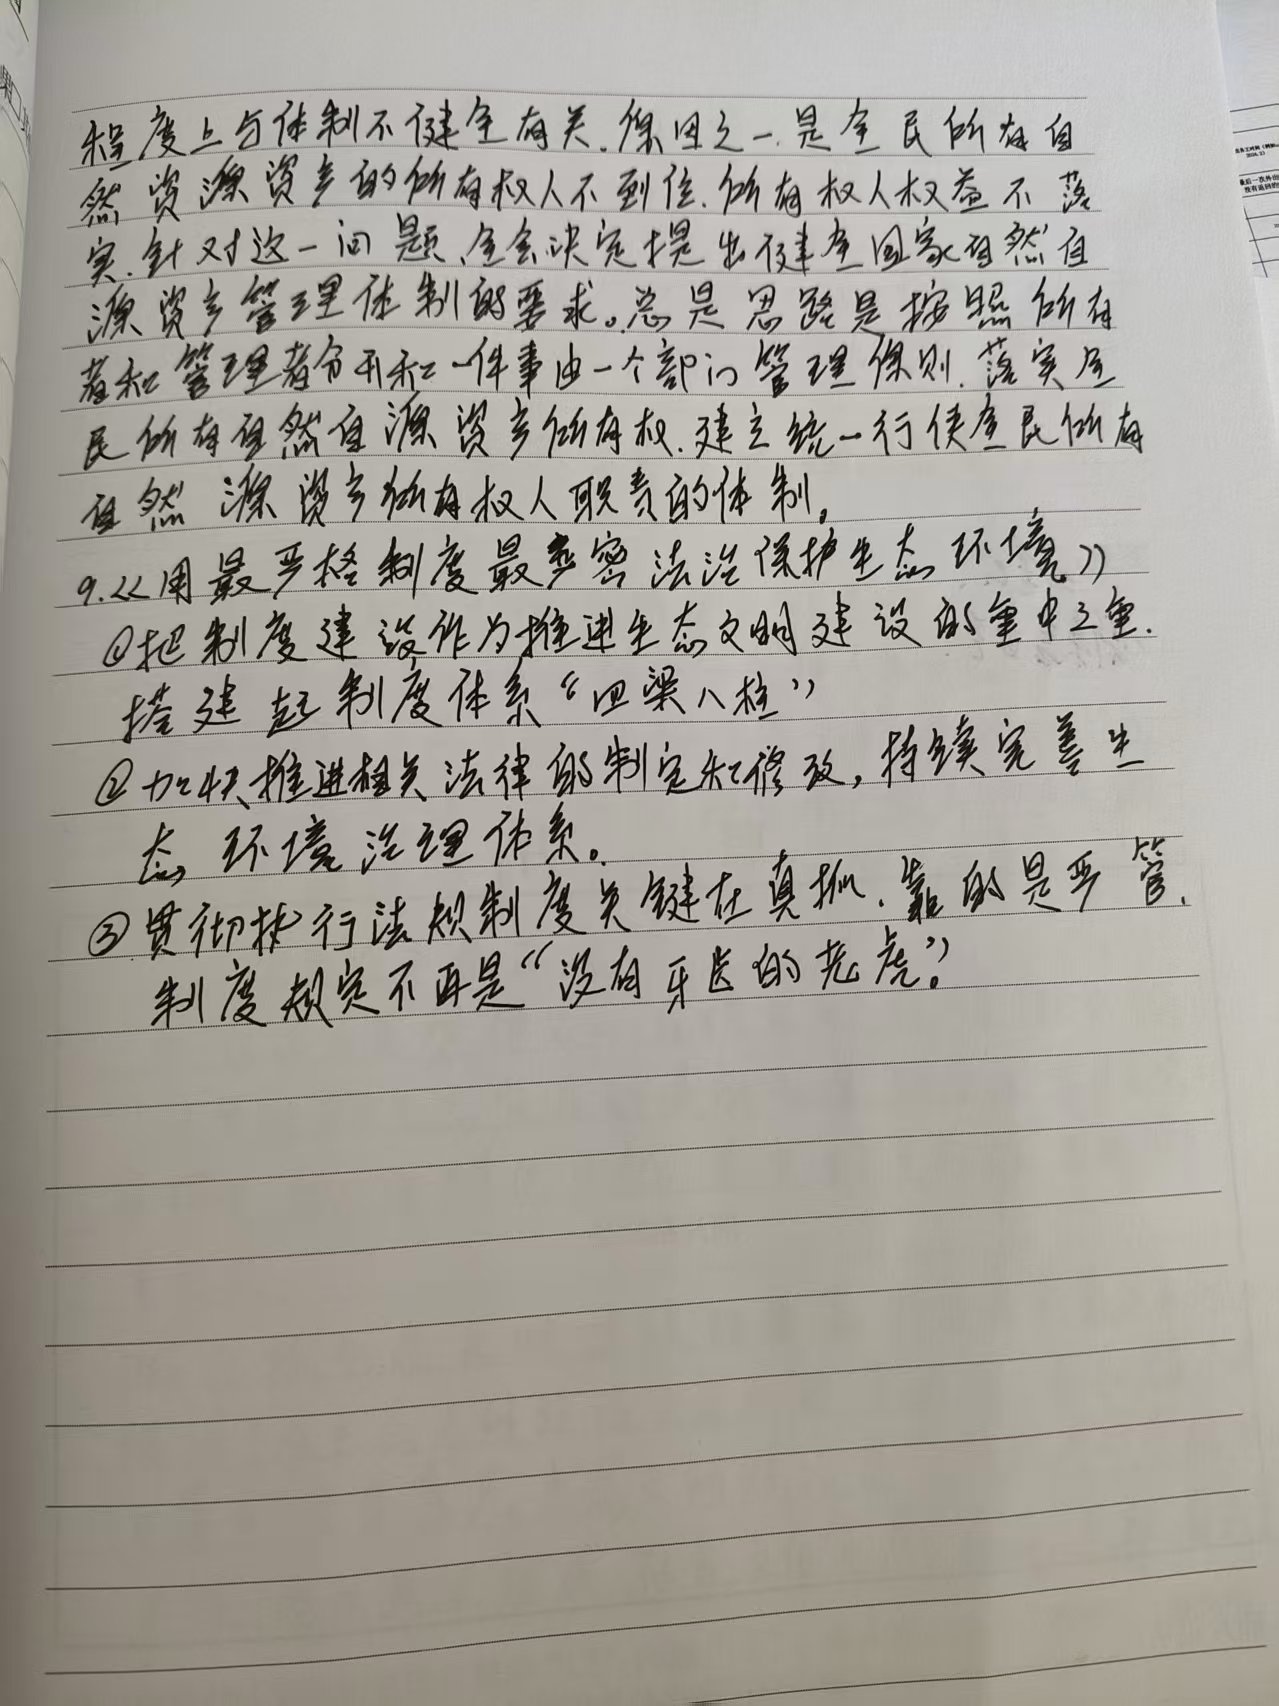 程度上与体制不健全有关.原因之一.是全民所有自
然资源资产的所有权人不到位.所有权人权益不落
实.针对这一问题、全会决定提出健全国家自然自
源资产管理体制的要求。总是思路是按照所有
者和管理者分开和一件事由一个部门管理原则.落实全
民所有自然自源资产所有权.建立统一行使全民所有
自然 源资产所有权人职责的体制。
9.《用最严格制度最严密法治保护生态环境》
①把制度建设作为推进生态文明建设的重中之重.
搭建起制度体系“四梁八柱”
②加快推进相关法律的制定和修改,持续完善生
态环境治理体系。
③贯彻执行法规制度关键在真抓.靠的是严管.
制度规定不再是“没有牙齿的老虎”。